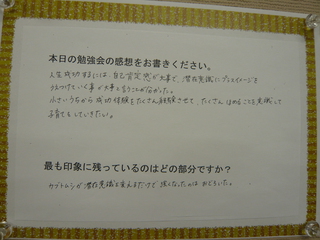 本日の勉強会の感想をお書きください。
人生成功するには、自己肯定感が大事で、潜在意識にプラスイメージを
うえつけていく事が大事と言うことが分かった。
小さいうちから成功体験をたくさん経験させて、たくさんほめることを意識して
子育てしていきたい。
最も印象に残っているのはどの部分ですか?
カブトムシが潜在意識を変えるだけで強くなったのはおどろいた。